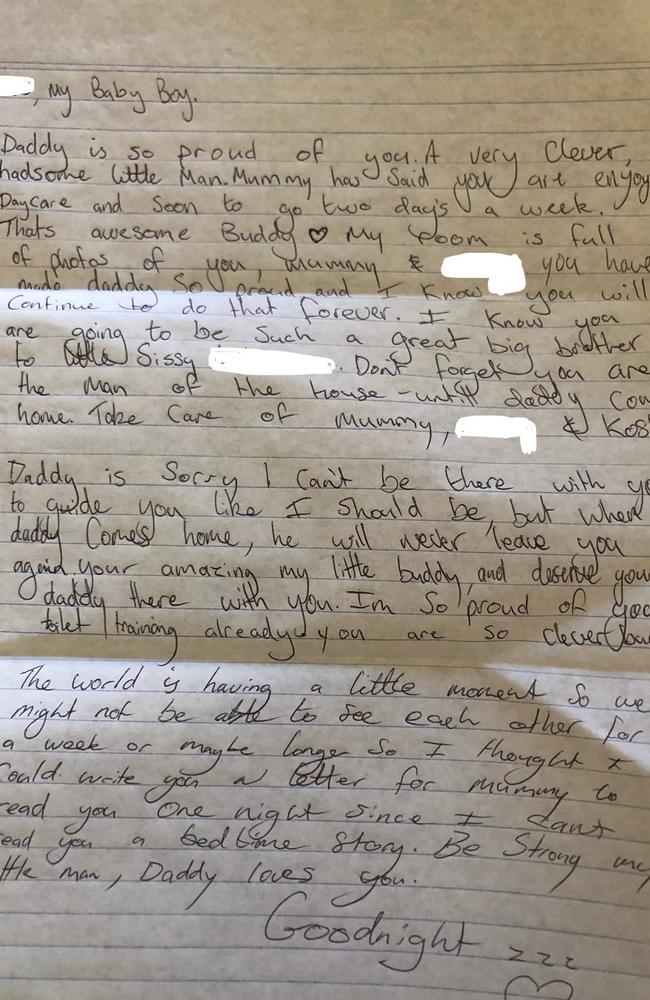 , My Baby Boy.
Daddy is so proud of you. A very Clever,
hadsome little Man. Mummy has Said you are enjoy
Daycare and Soon to go two day's a week.
Thats awesome Buddy ♡ My room is full
of photos of you, mummy & you have
made daddy So proud and I know you will
Continue to do that forever. I know you
are going to be Such a great big brother
to little Sissy . Don't forget you are
the man of the house - until daddy Com
home. Take Care of mummy, & Kos
Daddy is Sorry I Can't be there with yo
to guide you like I should be, but when
daddy Come's home, he will never leave you
again. your amazing my little buddy, and deserve you
daddy there with you. Im So proud of you
toilet training already you are so clever
The world is having a little moment So we
might not be able to see each other for
a week or maybe longer So I thought I
Could write you a letter for mummy to
read you One night since I Can't
read you a bedtime story. Be Strong my
ttle man, Daddy loves you.
Goodnight zzz
♡